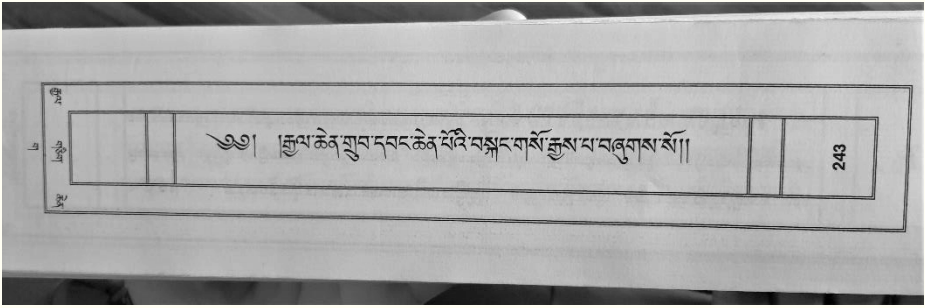 ༄༅། །རྒྱལ་ཆེན་གྲུབ་དབང་ཆེན་པོའི་བསྐང་གསོ་རྒྱས་པ་བཞུགས་སོ།།
243
གཅིག